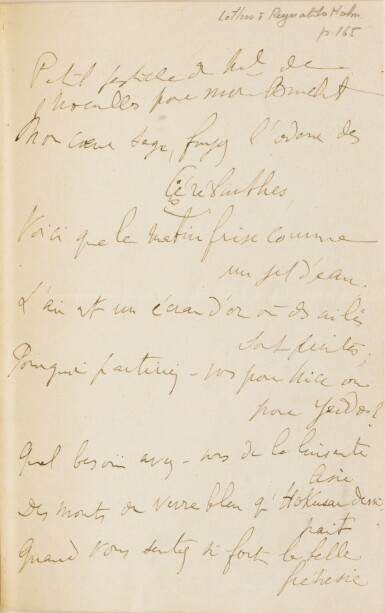 Lettres à Reynaldo Hahn
p. 165
Petit pastiche de Mme de
Noailles pour mon Bunchtt
Mon cœur sage, fuyez l'odeur des
térébinthes,
Voici que le matin frise comme
un jet d'eau.
L'air est un écran d'or où des ailes
sont peintes;
Pourquoi partiriez-vous pour Nice ou
pour Yeddo?
Quel besoin avez-vous de la luisante
Asie
Des monts de verre bleu qu'Hokusai dessi-
nait
Quand vous sentez si fort la belle
frénésie